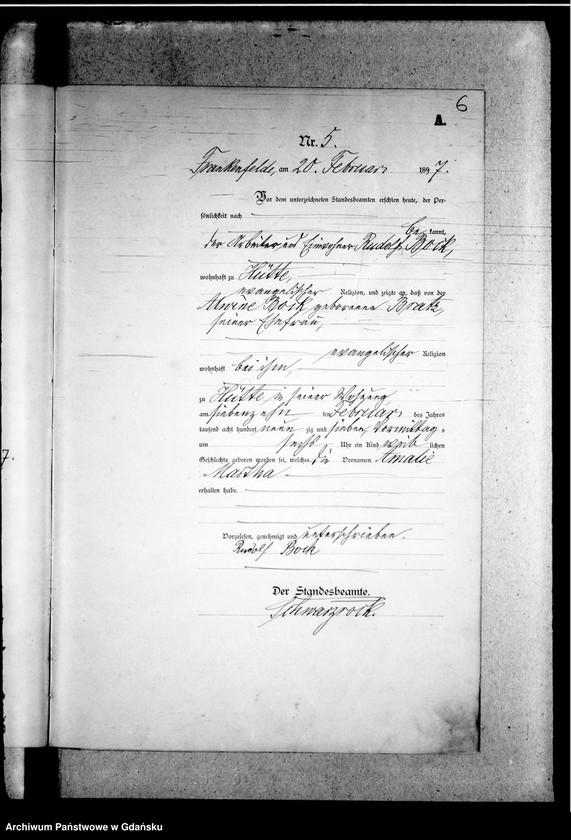 6
A.
Nr. 5.
Frankenfelde, am 20. Februar 1897.
Vor dem unterzeichneten Standesbeamten erschien heute, der Per-
sönlichkeit nach
be kannt,
der Arbeiter und Einwohner Rudolf Bock,
wohnhaft zu Hütte,
evangelischer Religion, und zeigte an, daß von der
Alwine Bock geborenen Bratz,
seiner Ehefrau,
evangelischer Religion
wohnhaft bei ihm,
zu Hütte in seiner Wohnung
am siebenzehn ten Februar des Jahres
tausend acht hundert neun zig und sieben, Vormittags
um sechs Uhr ein Kind weib lichen
Geschlechts geboren worden sei, welches die Vornamen Amalie
Martha
erhalten habe.
Vorgelesen, genehmigt und unterschrieben.
Rudolf Bock
Der Standesbeamte.
Schwarzrock.
7.
Archiwum Państwowe w Gdańsku